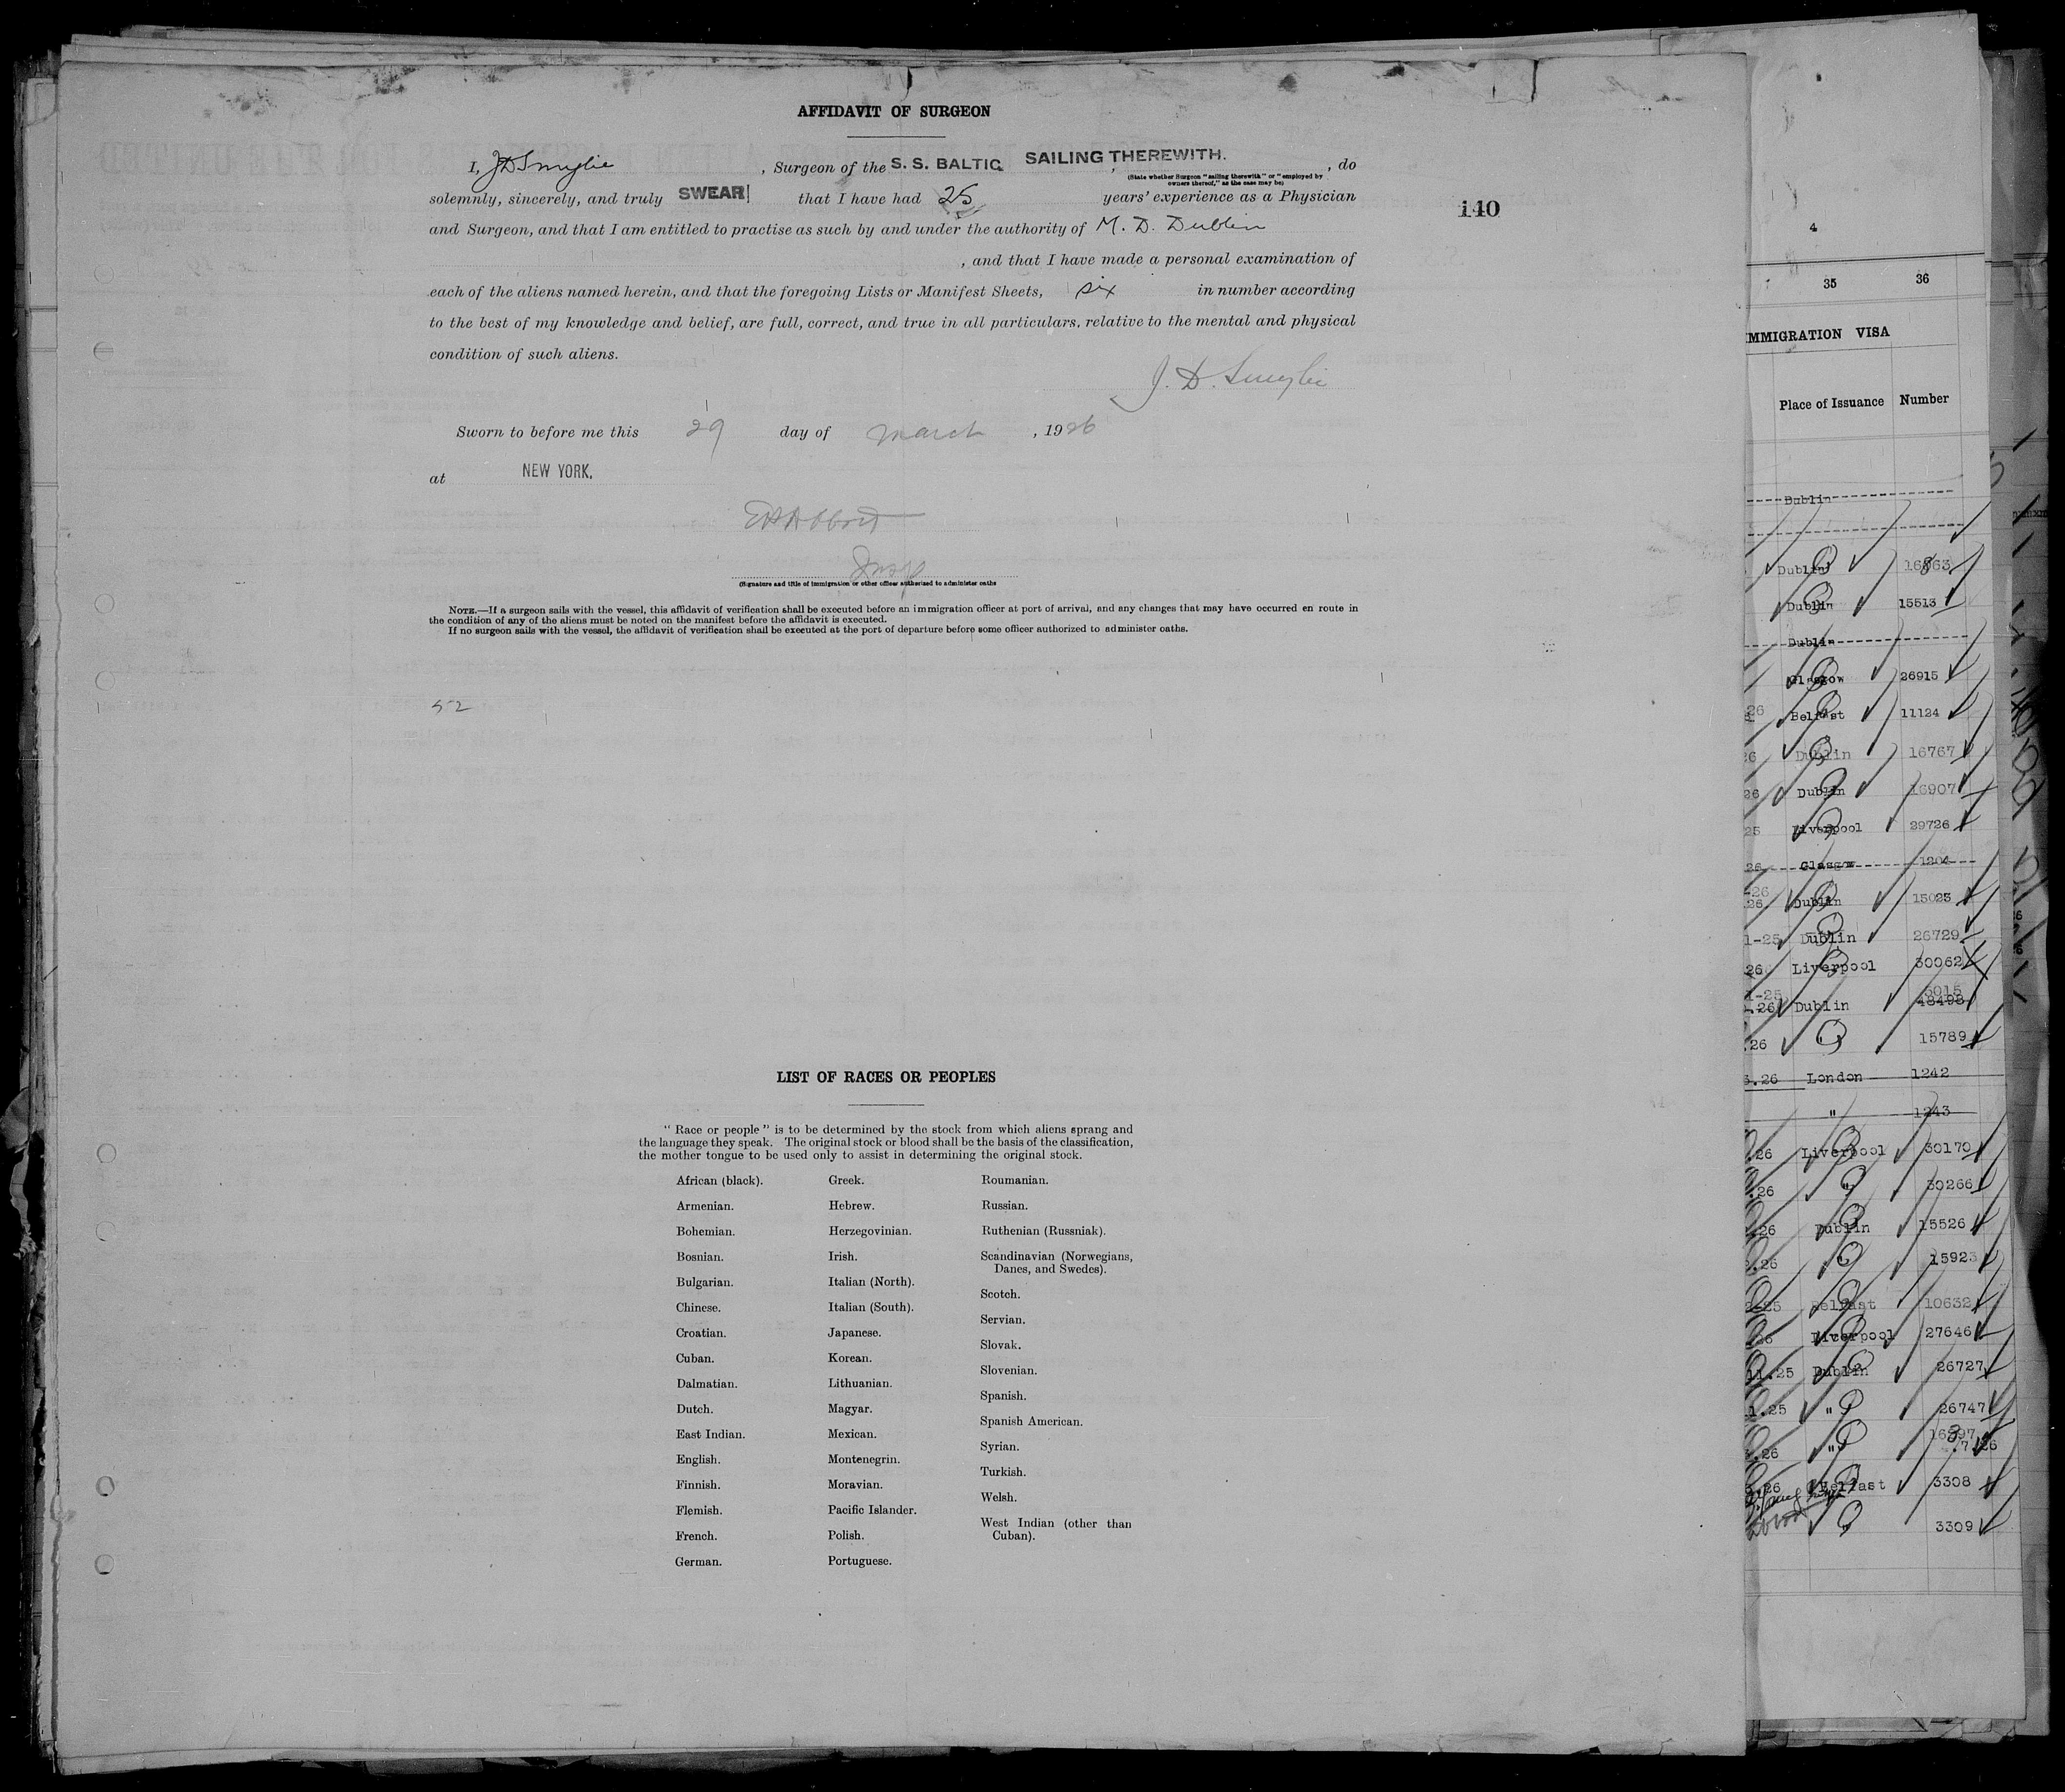 AFFIDAVIT OF SURGEON
I, J D Smylie , Surgeon of the S. S. BALTIC , SAILING THEREWITH. , do
(State whether Surgeon "sailing therewith" or "employed by
owners thereof," as the case may be)
solemnly, sincerely, and truly SWEAR that I have had 25 years' experience as a Physician
140
and Surgeon, and that I am entitled to practise as such by and under the authority of M. D. Dublin
, and that I have made a personal examination of
each of the aliens named herein, and that the foregoing Lists or Manifest Sheets, six in number according
to the best of my knowledge and belief, are full, correct, and true in all particulars, relative to the mental and physical
condition of such aliens.
J. D. Smylie
Sworn to before me this 29 day of March , 1926
at NEW YORK.
Insp
(Signature and title of immigration or other officer authorized to administer oaths
NOTE.—If a surgeon sails with the vessel, this affidavit of verification shall be executed before an immigration officer at port of arrival, and any changes that may have occurred en route in
the condition of any of the aliens must be noted on the manifest before the affidavit is executed.
If no surgeon sails with the vessel, the affidavit of verification shall be executed at the port of departure before some officer authorized to administer oaths.
52
LIST OF RACES OR PEOPLES
"Race or people" is to be determined by the stock from which aliens sprang and
the language they speak. The original stock or blood shall be the basis of the classification,
the mother tongue to be used only to assist in determining the original stock.
African (black).
Armenian.
Bohemian.
Bosnian.
Bulgarian.
Chinese.
Croatian.
Cuban.
Dalmatian.
Dutch.
East Indian.
English.
Finnish.
Flemish.
French.
German.
Greek.
Hebrew.
Herzegovinian.
Irish.
Italian (North).
Italian (South).
Japanese.
Korean.
Lithuanian.
Magyar.
Mexican.
Montenegrin.
Moravian.
Pacific Islander.
Polish.
Portuguese.
Roumanian.
Russian.
Ruthenian (Russniak).
Scandinavian (Norwegians,
Danes, and Swedes).
Scotch.
Servian.
Slovak.
Slovenian.
Spanish.
Spanish American.
Syrian.
Turkish.
Welsh.
West Indian (other than
Cuban).
4
35 36
IMMIGRATION VISA
Place of Issuance Number
Dublin
Dublin
Dublin 15513
Dublin
Glasgow 26915
26 Belfast 11124
26 Dublin 16767
26 Dublin 16907
25 Liverpool 29726
26 Glasgow 1204
26
26. Dublin 15023
1-25 Dublin 26729
26 Liverpool 30062
1-25 5015
.26 Dublin 48498
.26 " 15789
3.26 London 1242
" 1243
.26 Liverpool 30170
.26 " 30266
.26 Dublin 15526
.26 " 15923
-25 Belfast 10632
26 Liverpool 27646
11.25 Dublin 26727
1.25 " 26747
.26 "
.26 Belfast 3308
3309